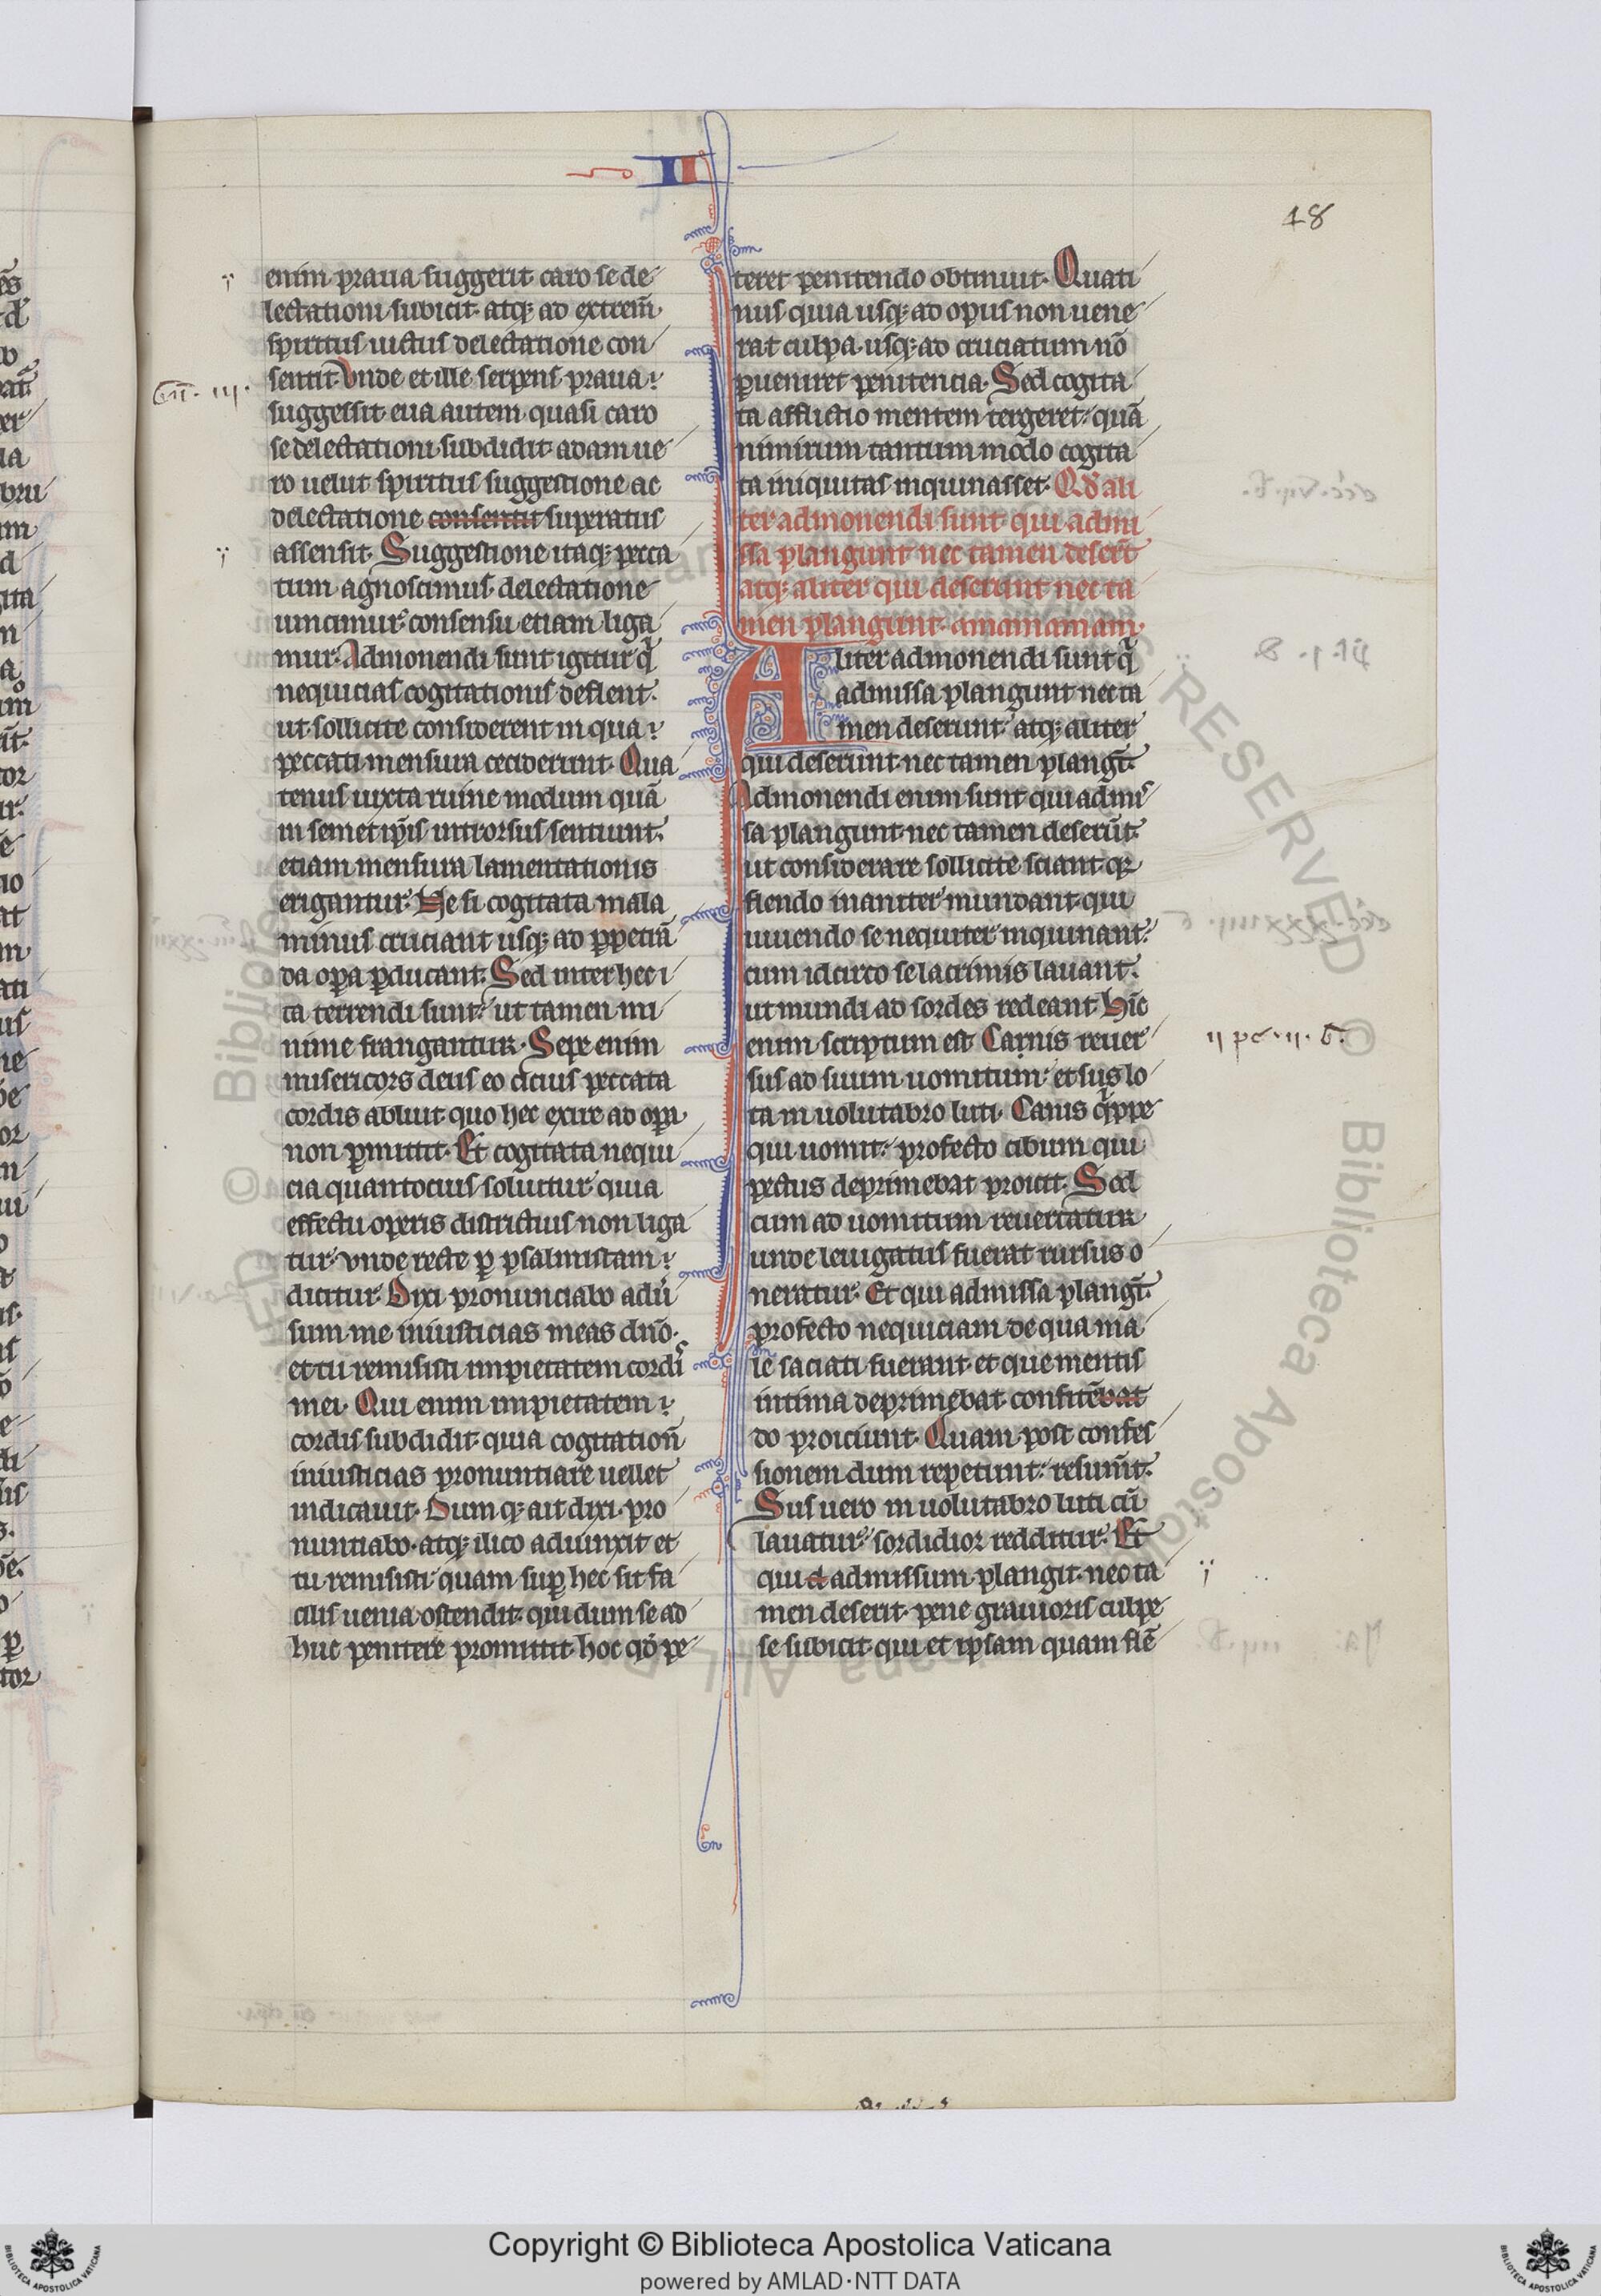 II
48
enim praua suggerit caro se de
lectationi subicit. atq; ad extremū
spiritus uictus delectatione con
sentit. Vnde et ille serpens praua
Gñ. iii.
suggessit eua autem quasi caro
se delectationi subdidit. adam ue
ro uelut spiritus suggestione ac
delectatione consentit superatus
assensit. Suggestione itaq; pecca
tum agnoscimus. delectatione
uincimur. consensu etiam liga
mur. Admonendi sunt igitur q̇
nequicias cogitationis deflent.
ut sollicite considerent in qua
peccati mensura ceciderunt. Qua
tenus iuxta ruine modum quā
in semet ip̄is introrsus sentiunt.
etiam mensura lamentationis
erigantur. Ne si cogitata mala
minus cruciant usq; ad ꝑpetrā
da oꝑa ꝑducant. Sed inter hec i
ta terrendi sunt. ut tamen mi
nime frangantur. Sepe enim
misericors deus eo cicius peccata
cordis abluit quo hec exire ad oꝑa
non ꝑmittit. Et cogitata nequi
cia quantocius soluitur quia
effectu operis districtius non liga
tur. vnde recte ꝑ psalmistam
dicitur. Dixi pronunciabo aduer
sum me iniusticias meas dn̄o.
et tu remisisti impietatem cordis
mei. Qui enim impietatem
cordis subdidit. quia cogitationū
iniusticias pronuntiare uellet
indicauit. Dumq; ait dixi. pro
nuntiabo. atq; ilico adiunxit et
tu remisisti quam suꝑ hec sit fa
cilis uenia ostendit. qui dum se ad
huc penitere promittit. hoc qd̄ pe
teret penitendo obtinuit. Quati
nus quia usq; ad opus non uene
rat culpa. usq; ad cruciatum nō
ꝑueniret penitencia. Sed cogita
ta afflictio mentem tergeret. quā
nimirum tantum modo cogita
ta iniquitas inquinasset. Qd̄ ali
ter admonendi sunt qui admi
ssa plangunt nec tamen deserūt
atq; aliter qui deserunt nec ta
men plangunt.
Aliter admonendi sunt q̇
admissa plangunt nec ta
men deserunt. atq; aliter
qui deserunt. nec tamen plangūt.
Admonendi enim sunt qui admis
sa plangunt. nec tamen deserūt.
ut considerare sollicite sciant. qꝛ
flendo inaniter mundant. qui
uiuendo se nequiter inquinant.
cum idcirco se lacrimis lauant.
ut mundi ad sordes redeant. Hīc
enim scriptum est Canis reuer
ii pe. ii. G.
sus ad suum uomitum. et sus lo
ta in uolutabro luti. Canis q̇ppe
qui uomit. profecto cibum qui
pectus deprimebat proicit. Sed
cum ad uomitum reuertatur
unde leuigatus fuerat rursus o
neratur. Et qui admissa plangūt.
profecto nequiciam de qua ma
le saciati fuerant et que mentis
intima deprimebat. confitēbat
do proiciunt. Quam post confes
sionem dum repetunt. resumūt.
Sus uero in uolutabro luti cū
lauatur. sordidior redditur. Et
qui d admissum plangit. nec ta
men deserit. pene grauioris culpe
se subicit qui et ipsam quam flē
Copyright © Biblioteca Apostolica Vaticana
powered by AMLAD·NTT DATA